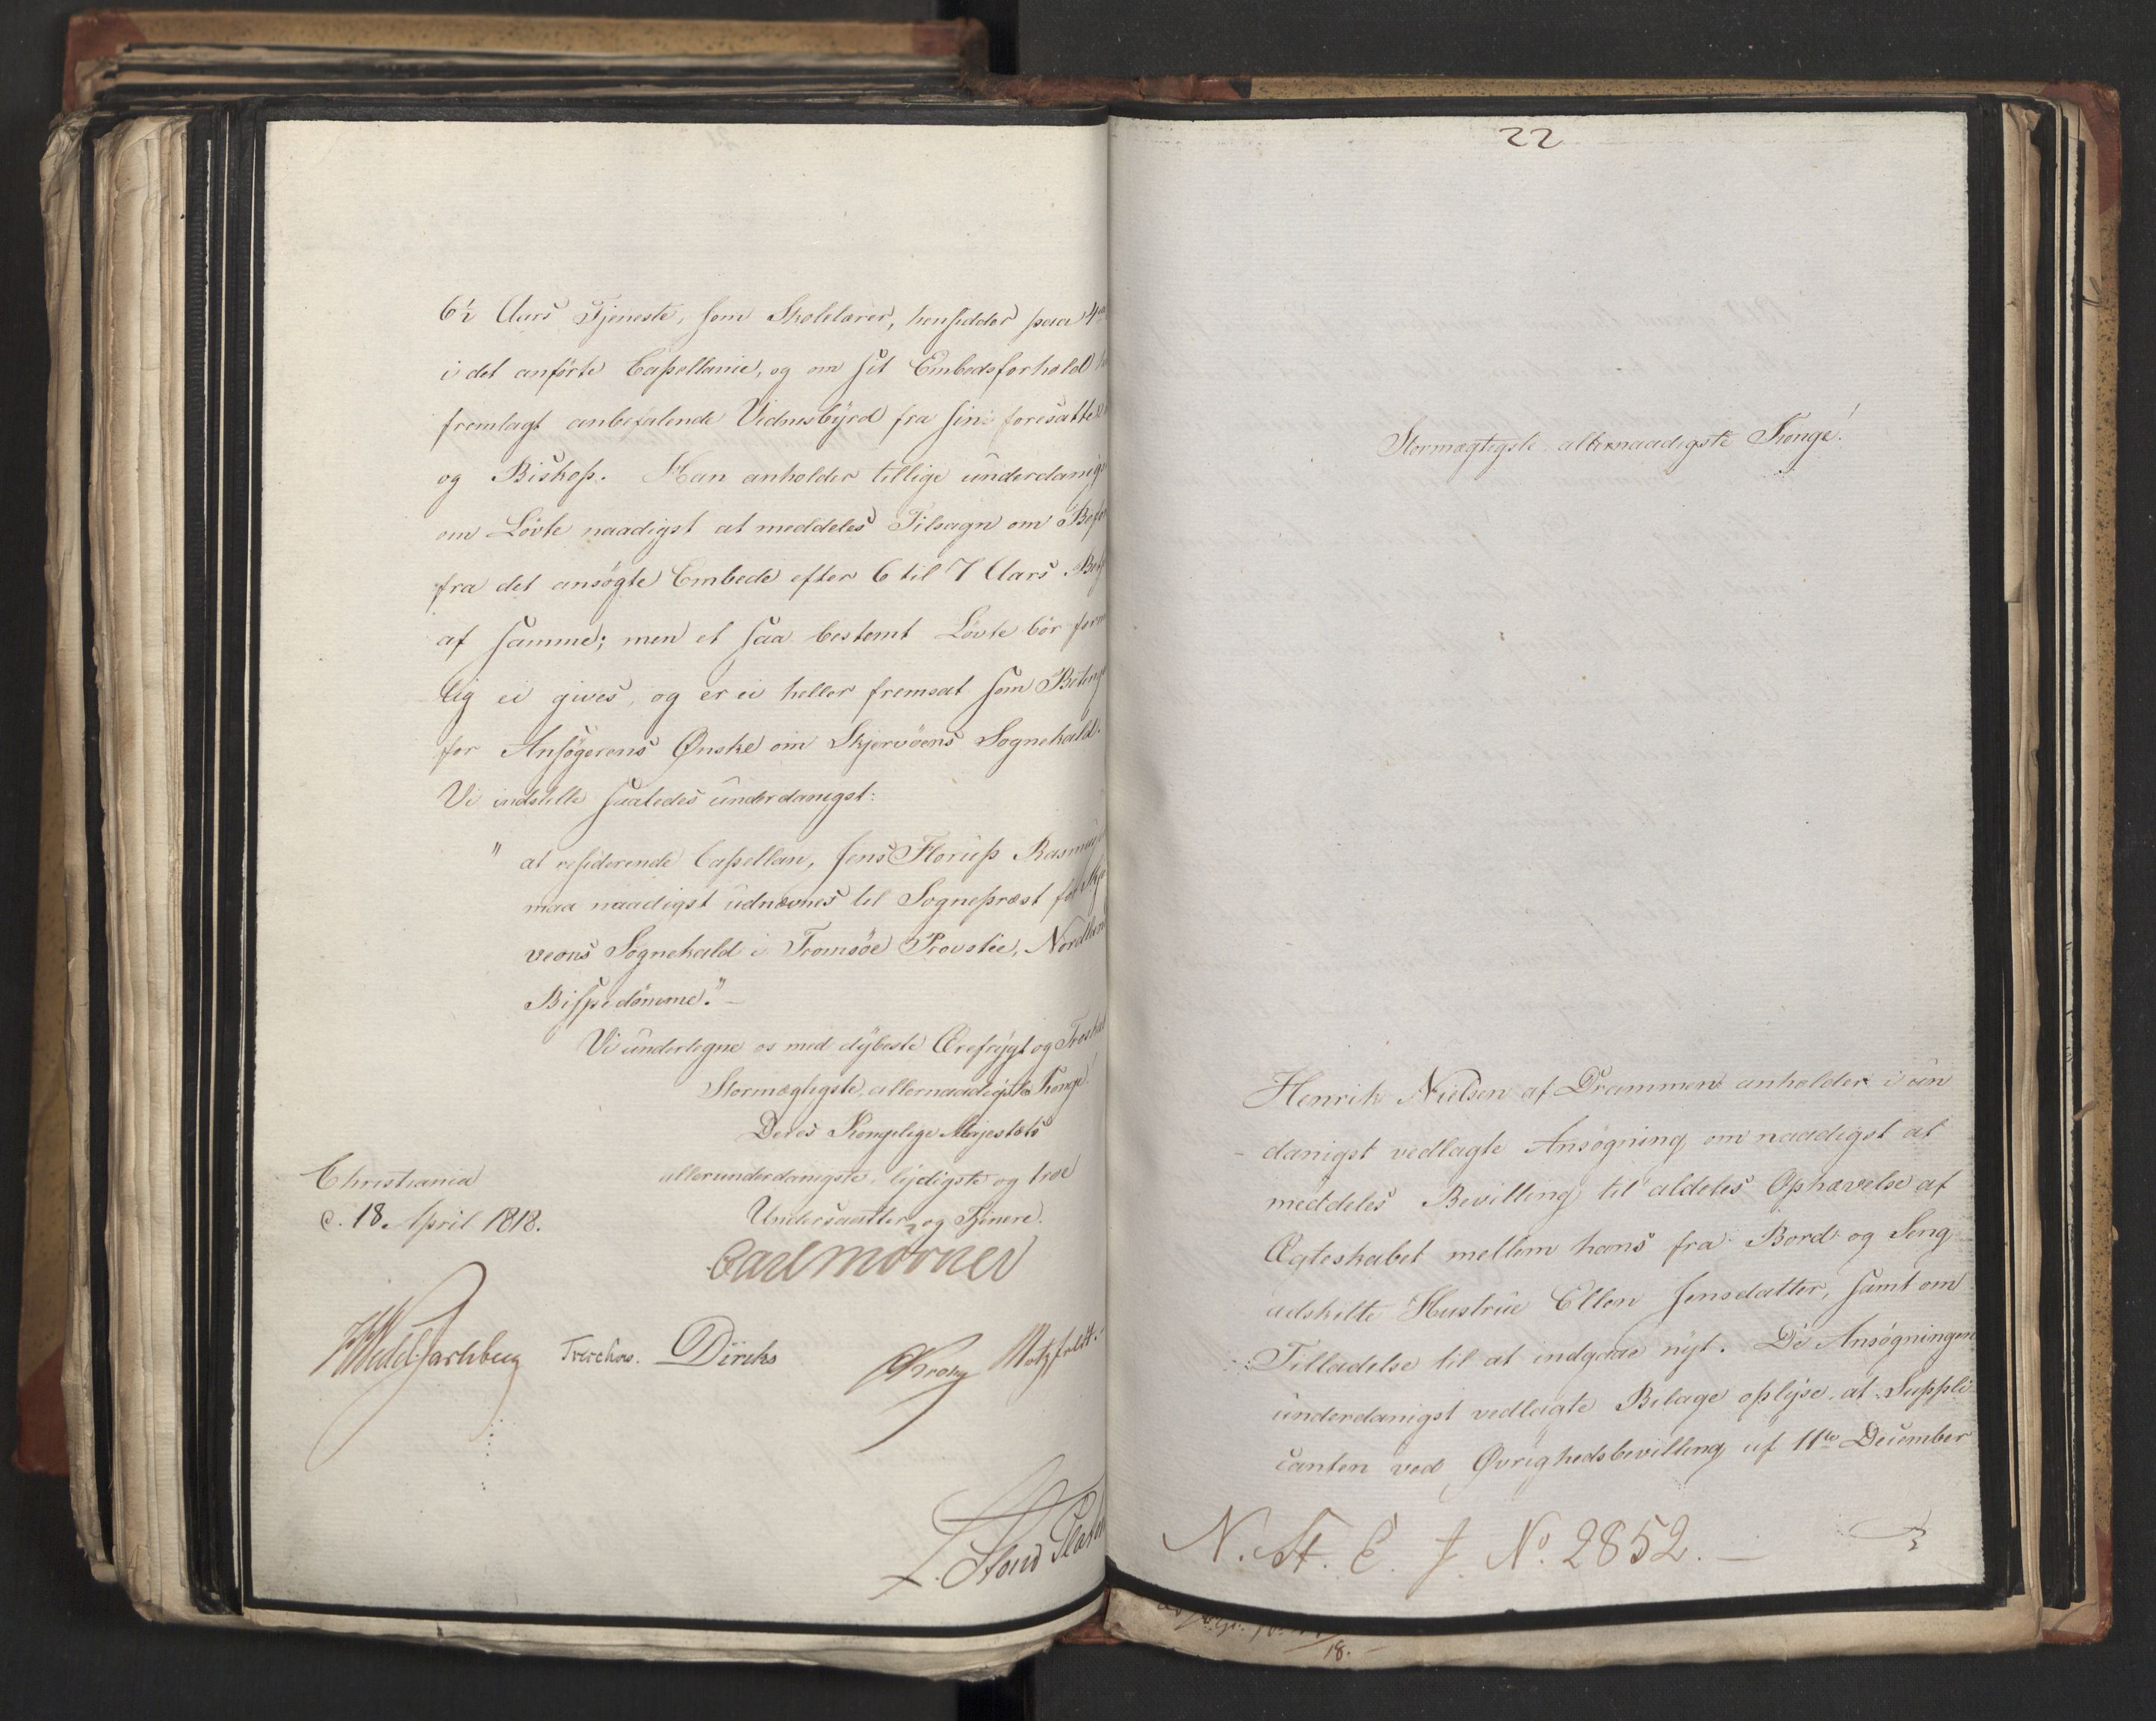 6½ Aars Tjeneste, som Skolelærer, hensidder paa 4de
i det anførte Capellanie, og om sit Embedsforhold
fremlagt anbefalende Vidnesbyrd fra sin foresatte
og Biskop. Han anholder tillige underdanigst
om Løvte naadigst at meddeles Tilsagn om Befor
fra det ansøgte Embede efter 6 til 7 Aars
af samme; men et saa bestemt Løvte bør form
lig ei gives, og er ei heller fremsat som Beting
for Ansøgerens Ønske om Skjervöens Sognekald.
Vi indstille saaledes underdanigst:
" at residerende Capellan, Jens Floriess Rasmus
maa naadigst udnævnes til Sognepræst for Skjer
veøns Sognekald i Tromsöe Provstie, Nordland
Bispedømme." –
Vi underlegne os med dybeste Ærefrygt og Troskab
Stormægtigste, allernaadigste Konge!
Deres Kongelige Majestæts
Christiania
allerunderdanigste, lydigste og troe
d. 18. April 1818.
Undersaatter og Tjenere.
Carl Mörner
HWedel Jarlsberg Treschow. Diriks Krog Motzfeldt.
22
Stormægtigste, allernaadigste Konge!
Henrik Nielsen af Drammen anholder i un
danigst vedlagte Ansøgning, om naadigst at
meddeles Bevilling til aldeles Ophævelse af
Ægteskabet mellem hans fra Bord og Seng
adskilte Hustrue Ellen Jensdatter, samt om
Tilladelse til at indgaae nyt. De Ansøgningen
underdanigst vedlagte Bilage oplyse, at Suppli
canten ved Øvrighedsbevilling af 11te December
N. St. E. J. No. 2852. –
18. –